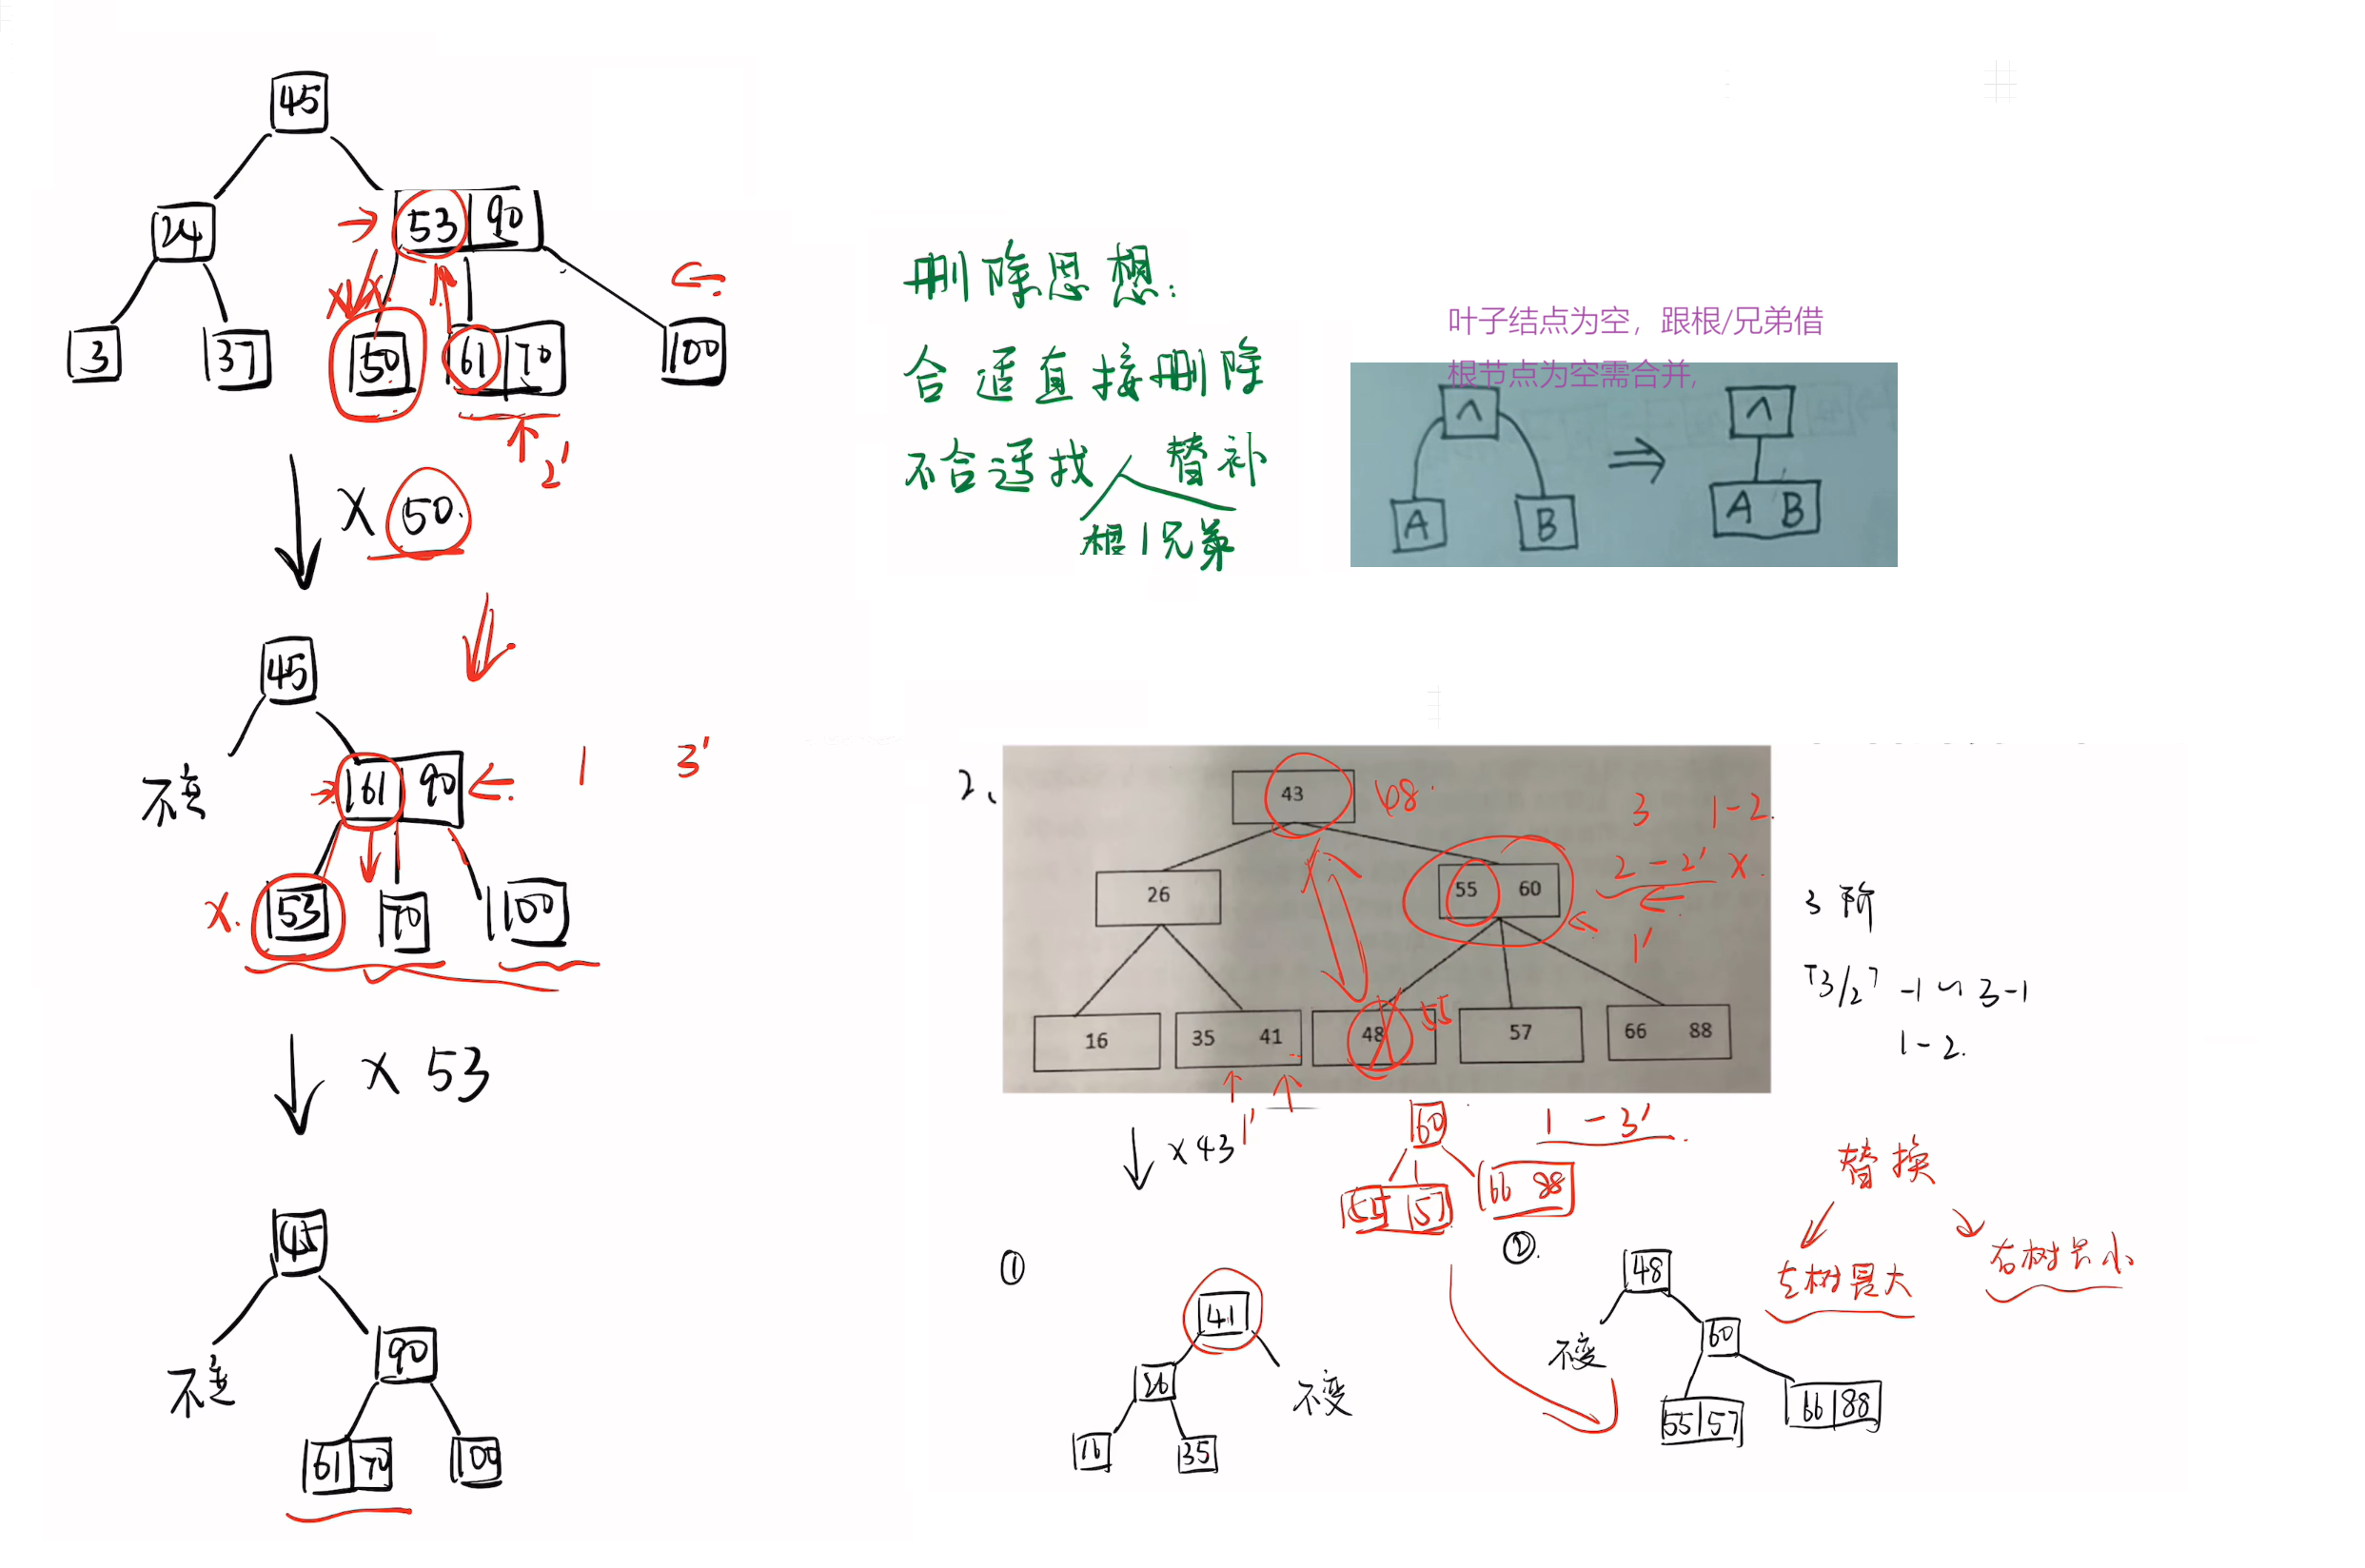 45
24
53 90
3
37
50
61 70
100
2'
× 50.
45
不变
61 90
1 3'
×.
53
70
100
× 53
45
不变
90
61 70
100
删除思想:
合适直接删除
不合适找 替补
根 | 兄弟
叶子结点为空，跟根/兄弟借
根节点为空需合并,
Λ
A
B
⇒
Λ
A B
2、
43
48.
3 1-2.
2-2' ×.
1'
26
55 60
16
35 41
48
55
57
66 88
3阶
⌈3/2⌉-1~3-1
1-2.
× 43
1'
60
1-3'
55 57
66 88
替换
左树最大
右树最小
①
41
26
不变
16
35
②.
48
不变
60
55 57
66 88